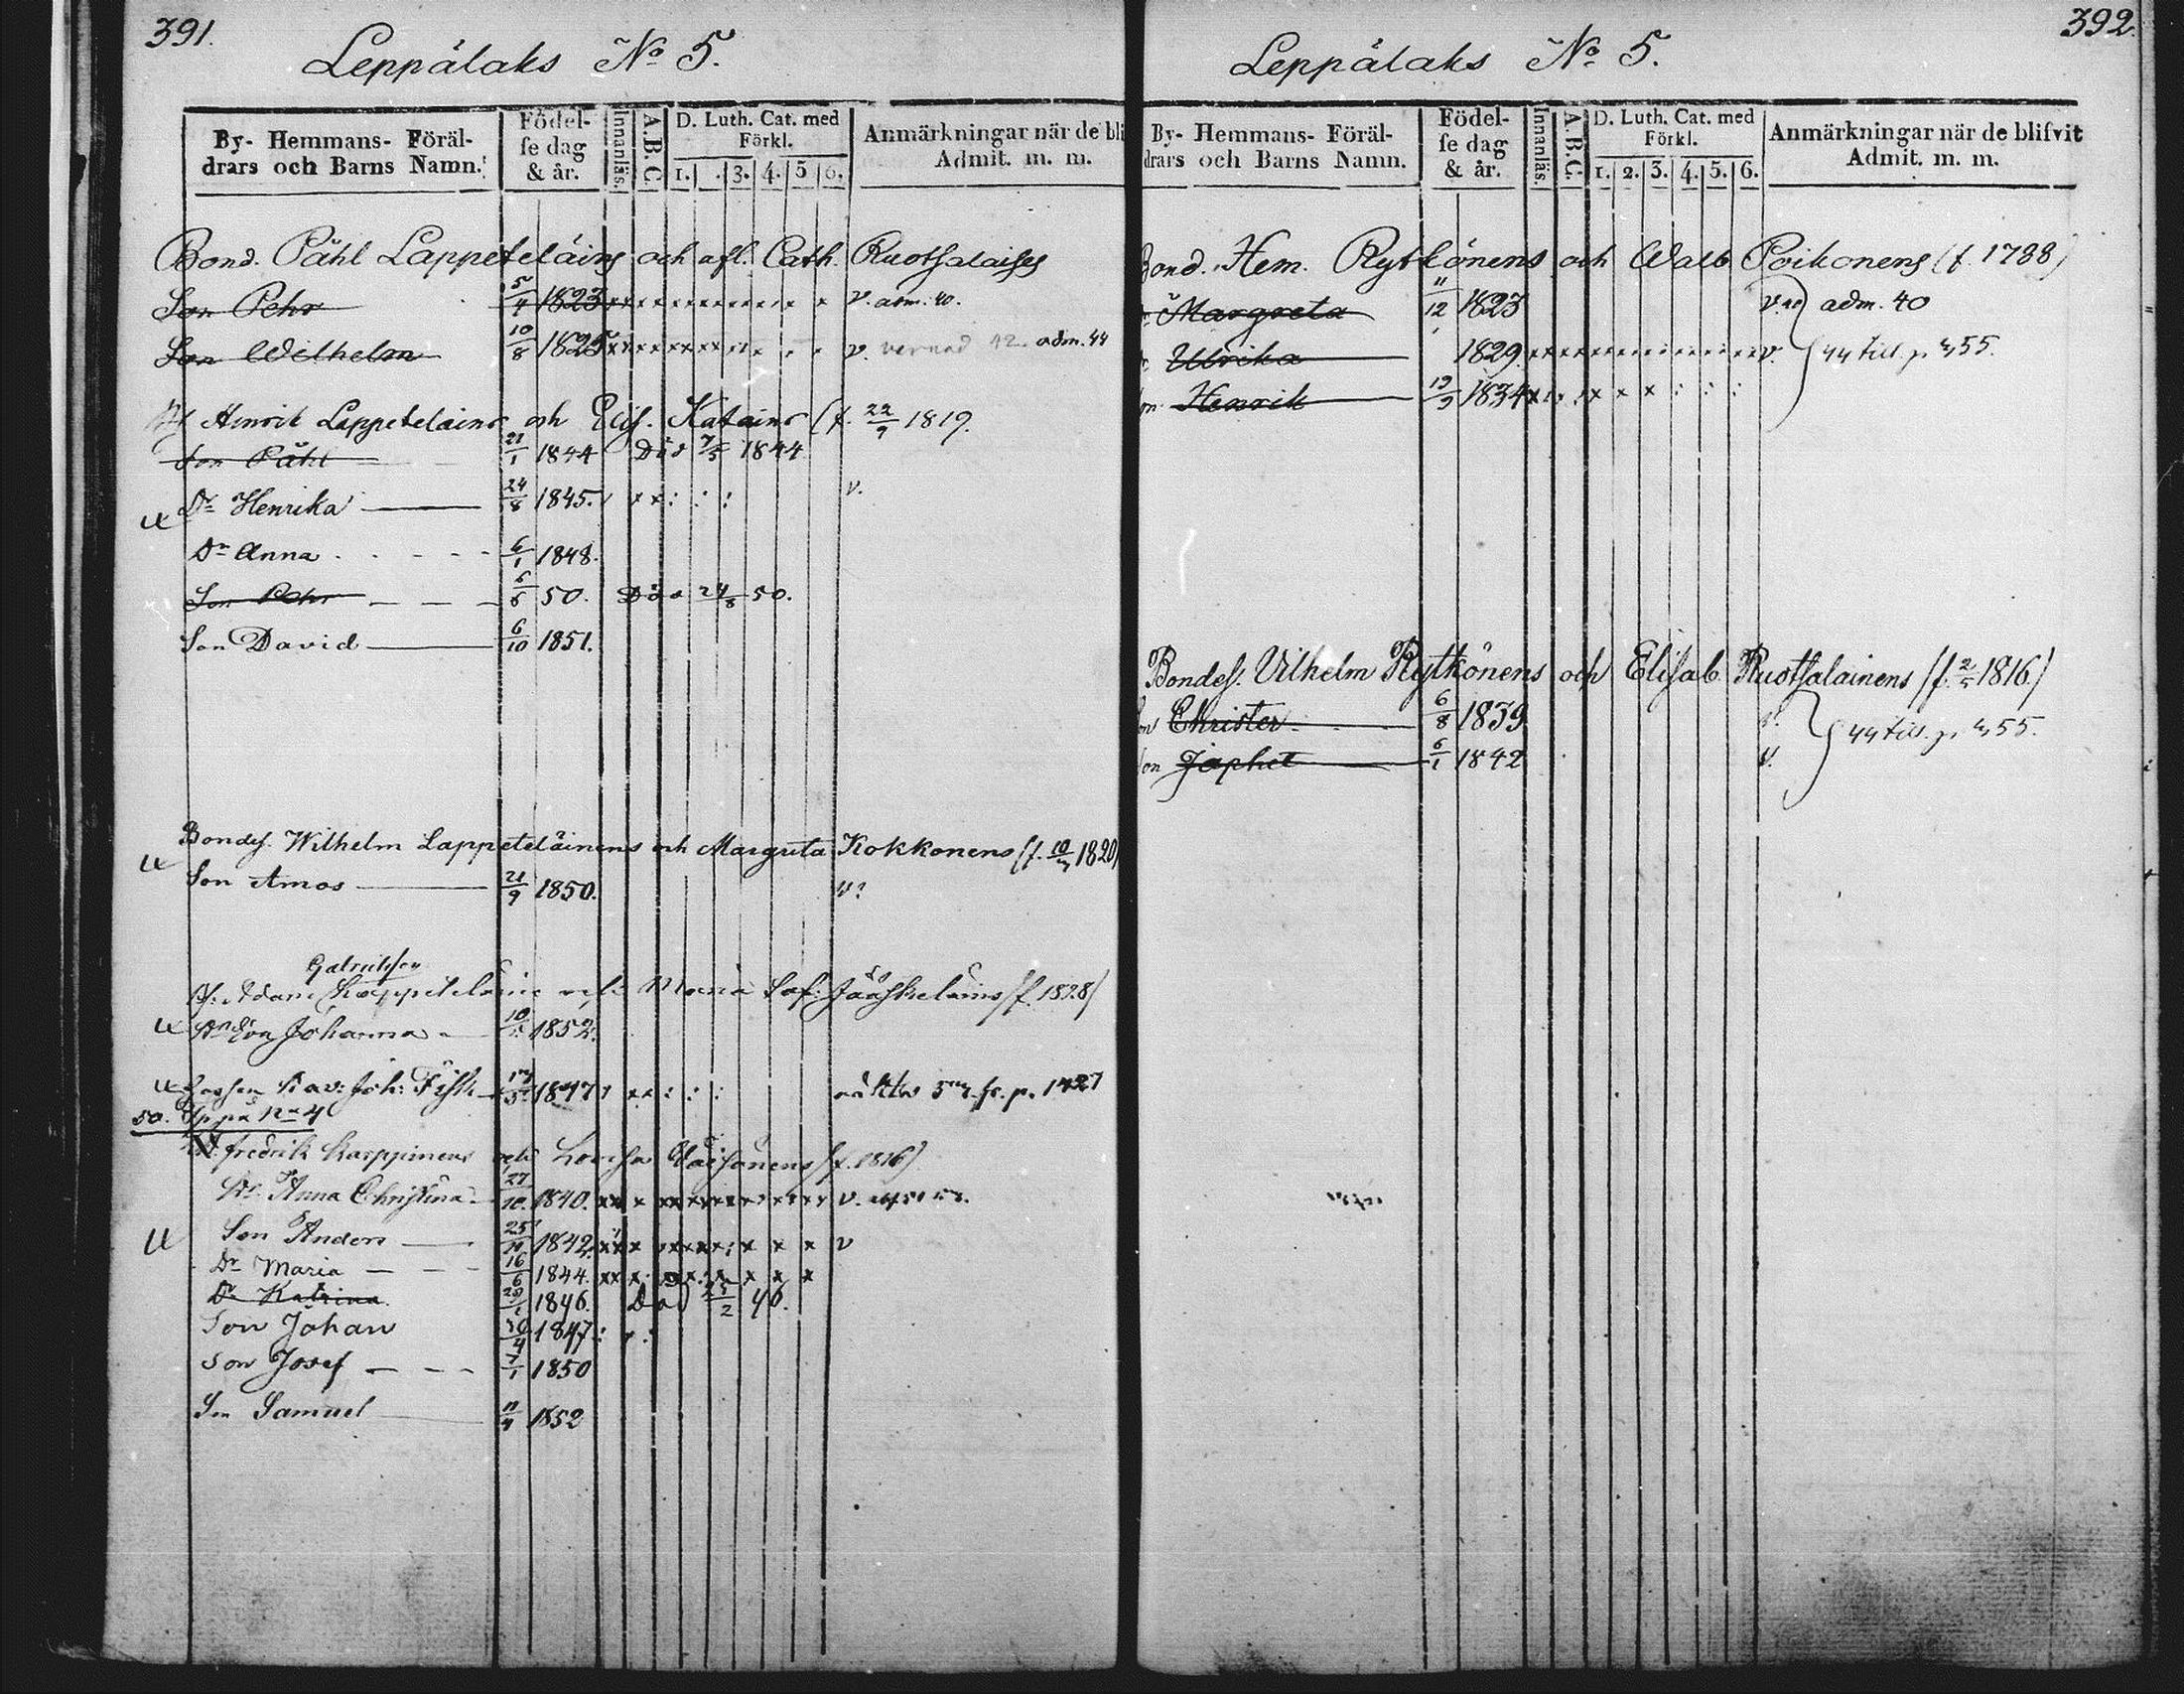 391.
Leppälaks No 5.
By- Hemmans- Föräl-
drars och Barns Namn.
Födel-
se dag
& år.
Innanläs.
A.B.C.
D. Luth. Cat. med
Förkl.
1. 3. 4. 5 6.
Anmärkningar när de bli
Admit. m. m.
Bond. Påhl Lappeteläins och afl. Cath. Ruotsalaises
Son Pehr 5/4 1823 v. adm. 40.
Son Wilhelm 10/8 1825 v. adm. 44
Henrik Lappetelains och Elis. Katains (f. 22/9 1819.
Son Påhl 21/1 1844 Död 7/5 1844
Dr Henrika 24/8 1845. v.
Dr Anna 6/1 1848.
Son Pehr 6/6 50. Död 24/8 50.
Son David 6/10 1851.
Bondes. Wilhelm Lappeteläinens och Margreta Kokkonens (f. 1820)
Son Amos 21/9 1850.
Adam och Maria Jääskelains (f. 1828)
Johanna 1852.
Joh: Fisk 1847
50.
Fredrik Karppinens och Lovisa Väisänens (f. 1816)
Dr Anna Christina 27/10. 1840. v.
Son Anders 1842. v
Dr Maria 16/6 1844.
Dr Katrina 1846. Död 46.
Son Johan 1847
Son Josef 7/1 1850
Son Samuel 1852
392.
Leppälaks No 5.
By- Hemmans- Föräl-
drars och Barns Namn.
Födel-
se dag
& år.
Innanläs.
A.B.C.
D. Luth. Cat. med
Förkl.
1. 2. 3. 4. 5. 6.
Anmärkningar när de blifvit
Admit. m. m.
Bond. Hem. Rytkönens och Walb Poikonens (f. 1788)
Margreta 11/12 1823 adm. 40
Ulrika 1829. v. 44 till p. 455.
Henrik 19/9 1834
Bondes. Vilhelm Rytkönens och Elisab. Ruotsalainens (f. 1816)
Christer 6/8 1839 44 till. p. 455.
Son Japhet 6/1 1842 v.